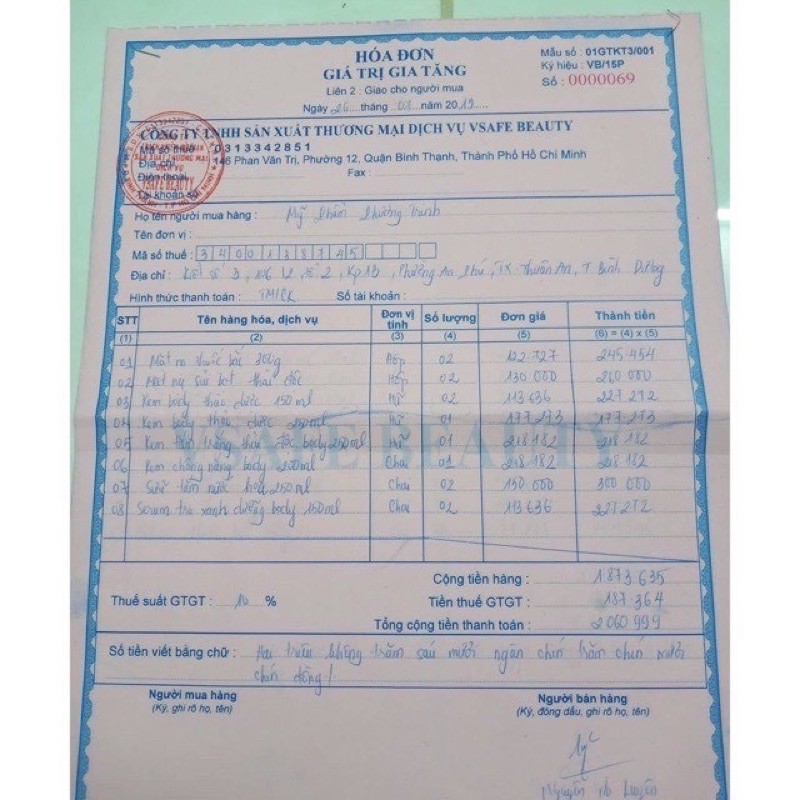 HÓA ĐƠN
GIÁ TRỊ GIA TĂNG
Liên 2 : Giao cho người mua
Ngày 26 tháng 03 năm 2019
Mẫu số : 01GTKT3/001
Ký hiệu : VB/15P
Số : 0000069
CÔNG TY TNHH SẢN XUẤT THƯƠNG MẠI DỊCH VỤ VSAFE BEAUTY
Mã số thuế : 0313342851
Địa chỉ : 146 Phan Văn Trị, Phường 12, Quận Bình Thạnh, Thành Phố Hồ Chí Minh
Điện thoại : Fax :
Tài khoản số
Họ tên người mua hàng : Mỹ Phẩm Phương Trinh
Tên đơn vị :
Mã số thuế : 3400138745
Địa chỉ : 3, 2, KP 1B, Phường An Phú, TX. Thuận An, T Bình Dương
Hình thức thanh toán : TM/CK Số tài khoản :
STT Tên hàng hóa, dịch vụ Đơn vị tính Số lượng Đơn giá Thành tiền
(1) (2) (3) (4) (5) (6) = (4) x (5)
01 Mặt nạ thuốc bắc 300g Hộp 02 122.727 245.454
02 Mặt nạ sủi bọt thải độc Hộp 02 130 000 260 000
03 Kem body thảo dược 150ml Hũ 02 113 636 227 272
04 Kem body thảo dược 250ml Hũ 01 177 273 177 273
05 Kem tắm trắng thải độc body 250ml Hũ 01 218 182 218 182
06 Kem chống nắng body 200ml Chai 01 218 182 218 182
07 Sữa tắm nước hoa 250ml Chai 02 150 000 300 000
08 Serum trà xanh dưỡng body 150ml Chai 02 113 636 227 272
VSAFE BEAUTY
Cộng tiền hàng : 1 873.635
Thuế suất GTGT : 10 % Tiền thuế GTGT : 187 364
Tổng cộng tiền thanh toán : 2 060 999
Số tiền viết bằng chữ : Hai triệu không trăm sáu mươi ngàn chín trăm chín mươi
chín đồng /
Người mua hàng Người bán hàng
(Ký, ghi rõ họ, tên) (Ký, đóng dấu, ghi rõ họ, tên)
Nguyễn